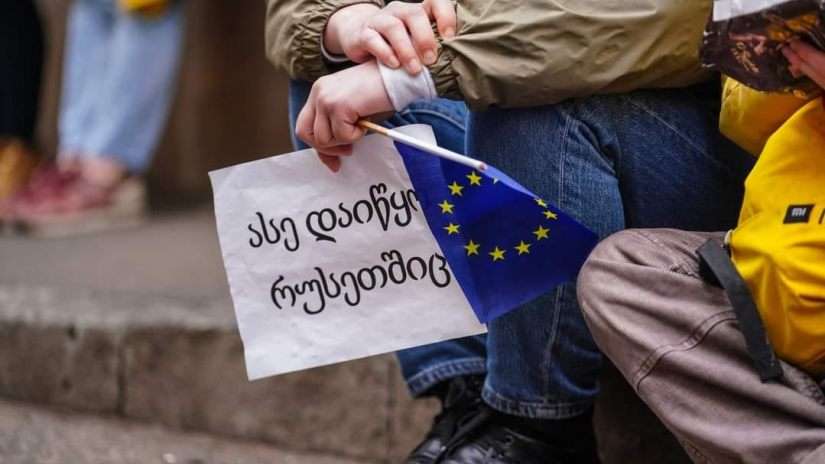 ასე დაიწყო
რუსეთშიც